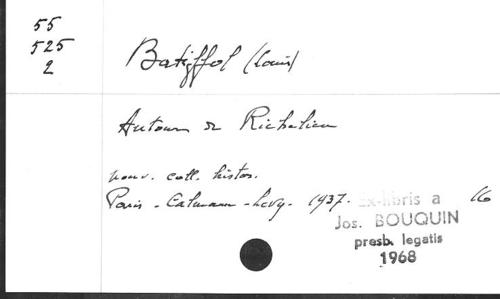 55
525
2
Batiffol (Louis)
Autour de Richelieu
nouv. coll. histor.
Paris - Calmann-Levy. 1937. 16
Ex-libris a
Jos. BOUQUIN
presb. legatis
1968